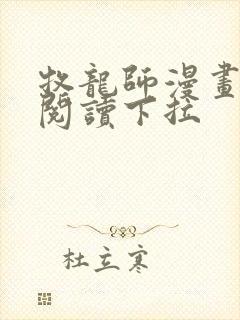 牧龍師漫畫
閱讀下拉
杜立寒